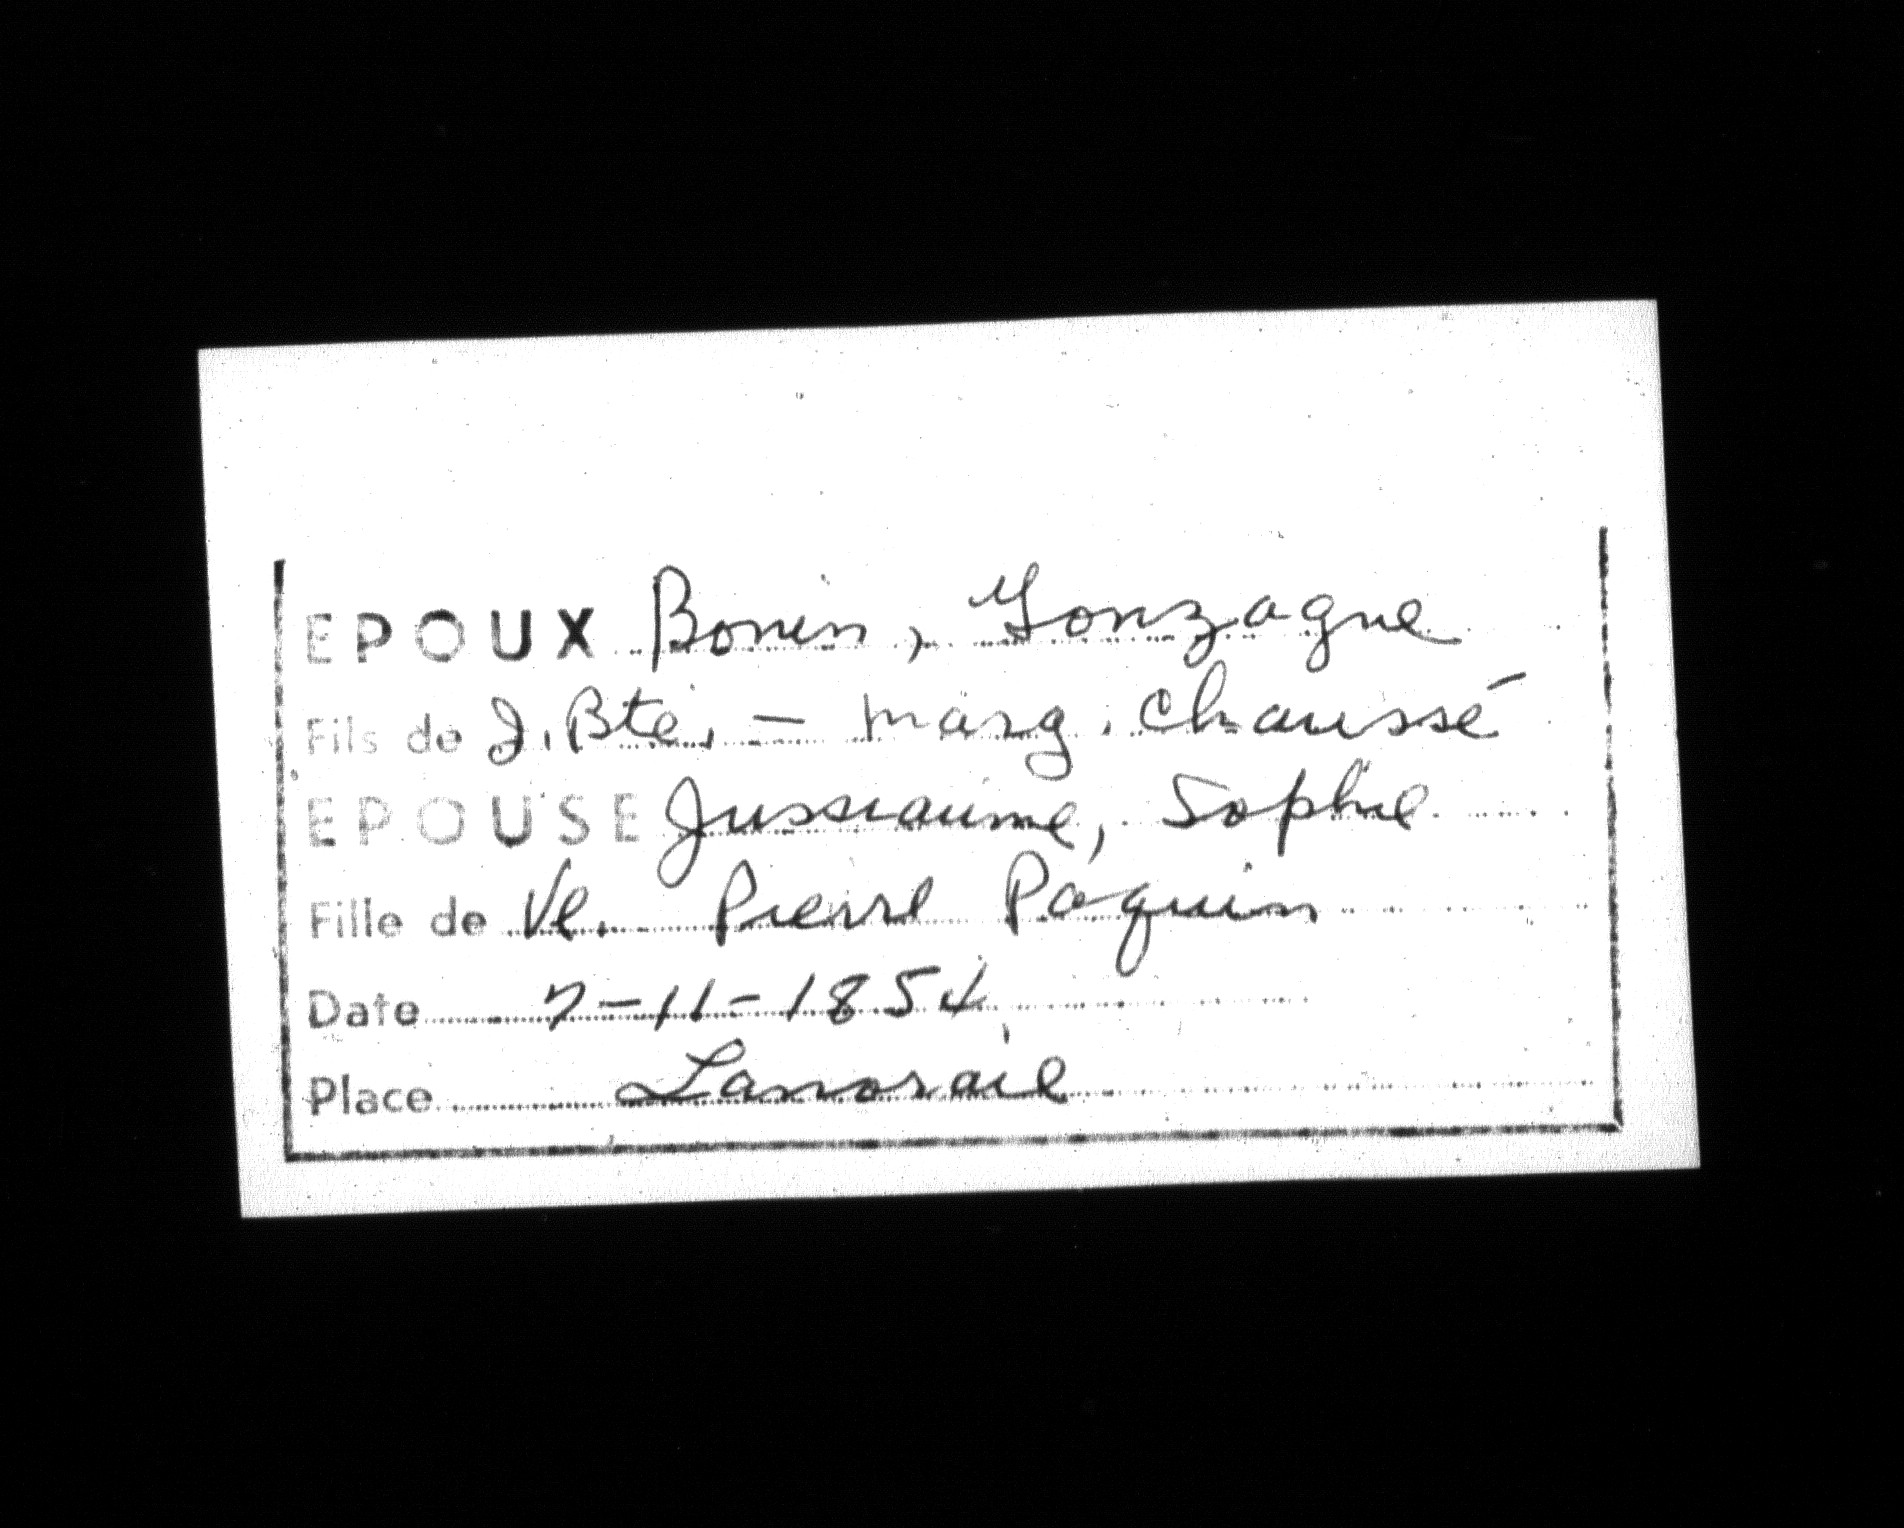 EPOUX Bonin, Gonzague
Fils de J. Bte. - Marg. Chaussé
EPOUSE Jussiaume, Sophie
Fille de Ve. Pierre Paquin
Date 7-11-1854
Place Lanoraie